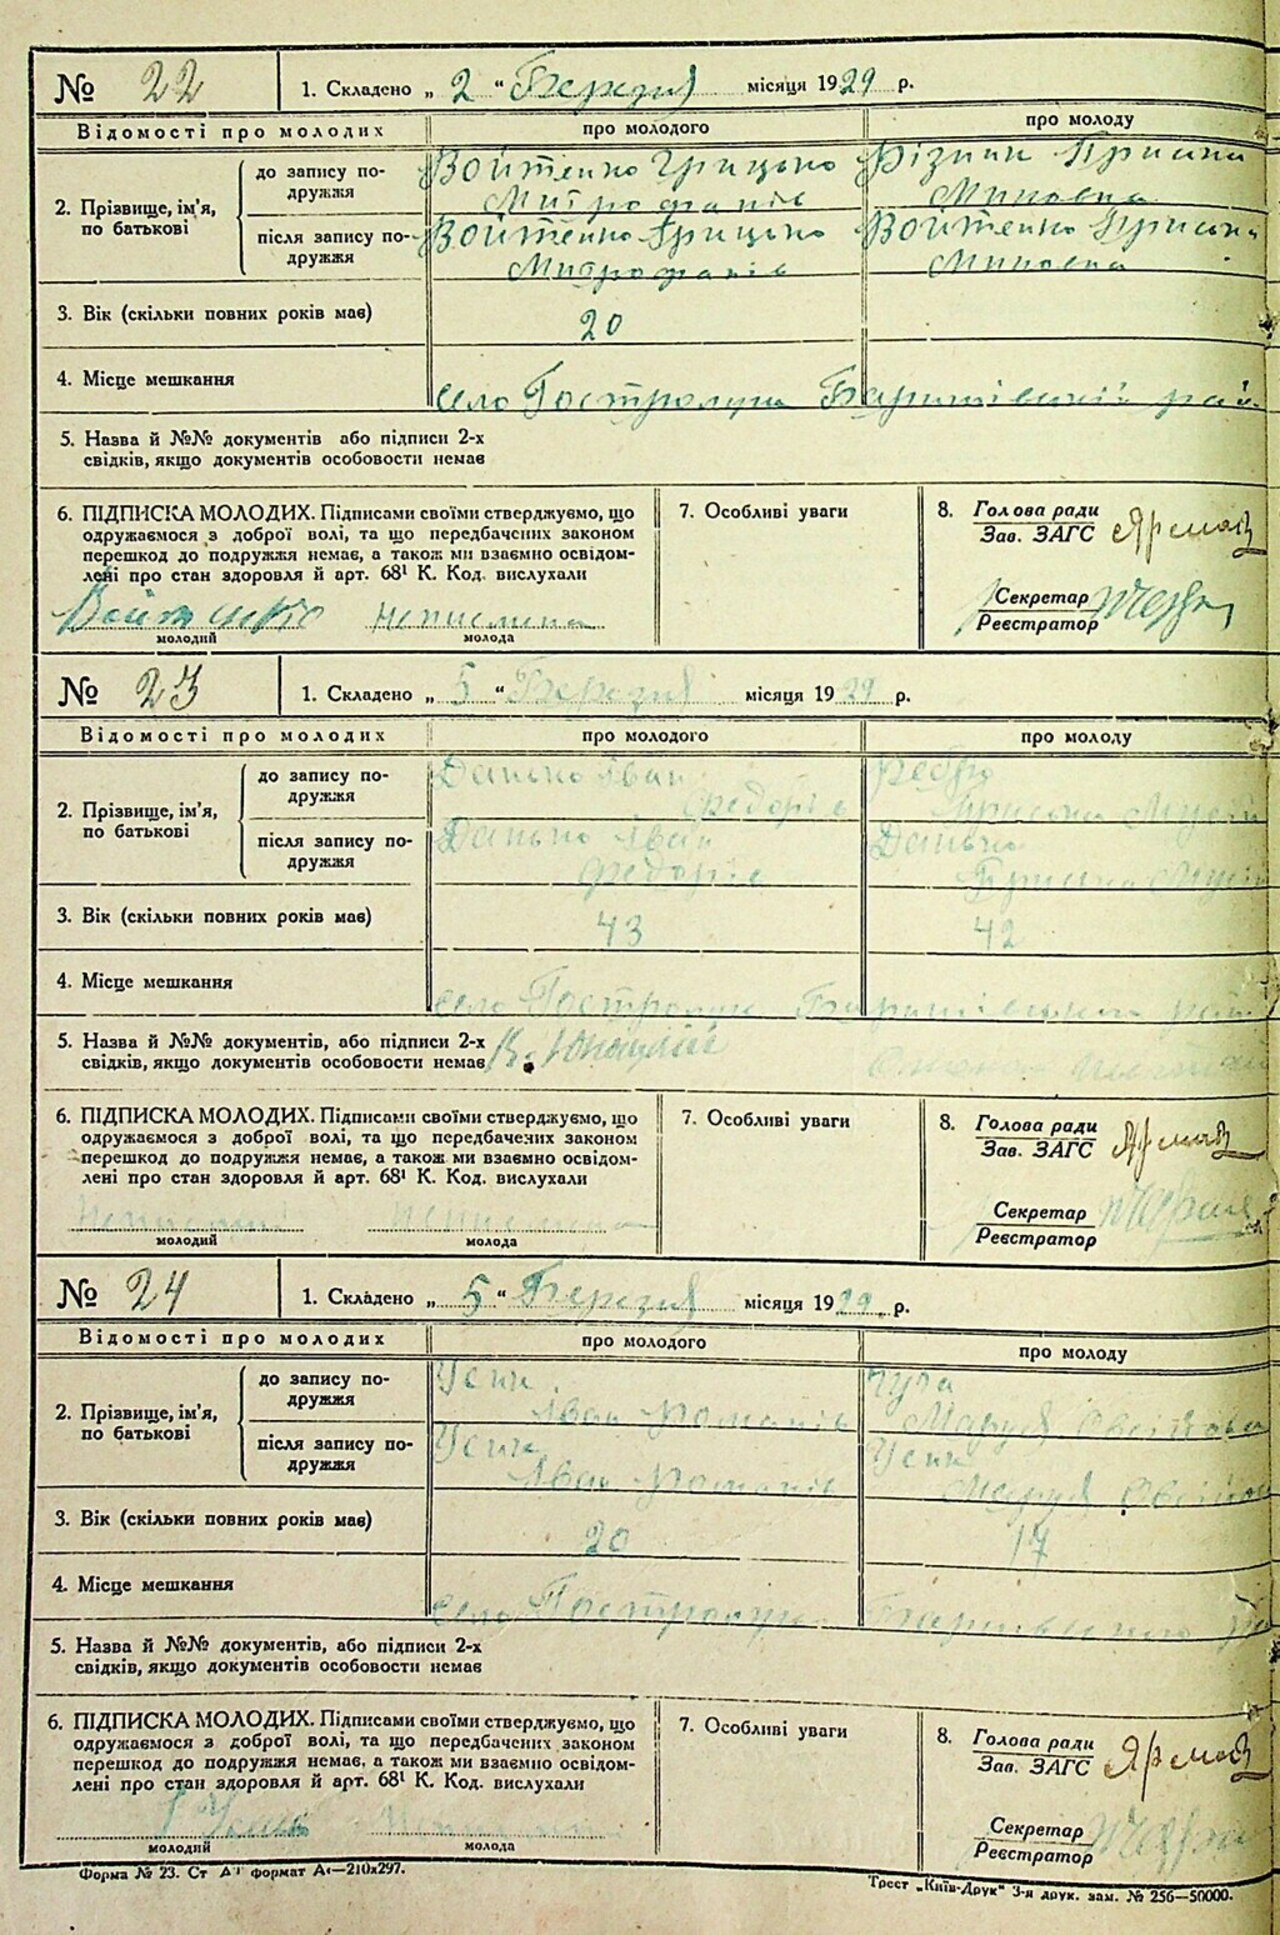 № 22 1. Складено „ 2 “ Березня місяця 1929 р.
Відомості про молодих про молодого про молоду
2. Прізвище, ім’я, по батькові
до запису подружжя
Войтенко Грицько
Митрофанів
Різник Приська
Миновна
після запису подружжя
Войтенко Грицько
Митрофанів
Войтенко Приська
Миновна
3. Вік (скільки повних років має) 20
4. Місце мешкання село Гостролуччя Баришівській рай.
5. Назва й №№ документів або підписи 2-х
свідків, якщо документів особовости немає
6. ПІДПИСКА МОЛОДИХ. Підписами своїми стверджуємо, що
одружаємося з доброї волі, та що передбачених законом
перешкод до подружжя немає, а також ми взаємно освідом-
лені про стан здоровля й арт. 68¹ К. Код. вислухали
Войтенко неписьмена
молодий молода
7. Особливі уваги
8. Голова ради
Зав. ЗАГС
Секретар
Реєстратор
№ 23 1. Складено „ 5 “ Березня місяця 1929 р.
Відомості про молодих про молодого про молоду
2. Прізвище, ім’я, по батькові
до запису подружжя
Данько Іван
Федорів
Ребро
Приська Мусій
після запису подружжя
Данько Іван
Федорів
Данько
Приська Мусій
3. Вік (скільки повних років має) 43 42
4. Місце мешкання село Гостролуччя
5. Назва й №№ документів, або підписи 2-х
свідків, якщо документів особовости немає
6. ПІДПИСКА МОЛОДИХ. Підписами своїми стверджуємо, що
одружаємося з доброї волі, та що передбачених законом
перешкод до подружжя немає, а також ми взаємно освідом-
лені про стан здоровля й арт. 68¹ К. Код. вислухали
неписьмений неписьмена
молодий молода
7. Особливі уваги
8. Голова ради
Зав. ЗАГС
Секретар
Реєстратор
№ 24 1. Складено „ 5 “ Березня місяця 1929 р.
Відомості про молодих про молодого про молоду
2. Прізвище, ім’я, по батькові
до запису подружжя
Усик
Іван Романів
Маруся
після запису подружжя
Усик
Іван Романів
Усик
Маруся
3. Вік (скільки повних років має) 20 17
4. Місце мешкання село Гостролуччя
5. Назва й №№ документів, або підписи 2-х
свідків, якщо документів особовости немає
6. ПІДПИСКА МОЛОДИХ. Підписами своїми стверджуємо, що
одружаємося з доброї волі, та що передбачених законом
перешкод до подружжя немає, а також ми взаємно освідом-
лені про стан здоровля й арт. 68¹ К. Код. вислухали
молодий молода
7. Особливі уваги
8. Голова ради
Зав. ЗАГС
Секретар
Реєстратор
Форма № 23. Ст А¹ формат А₄—210х297.
Трест „Київ-Друк“ 3-я друк. зам. № 256—50000.